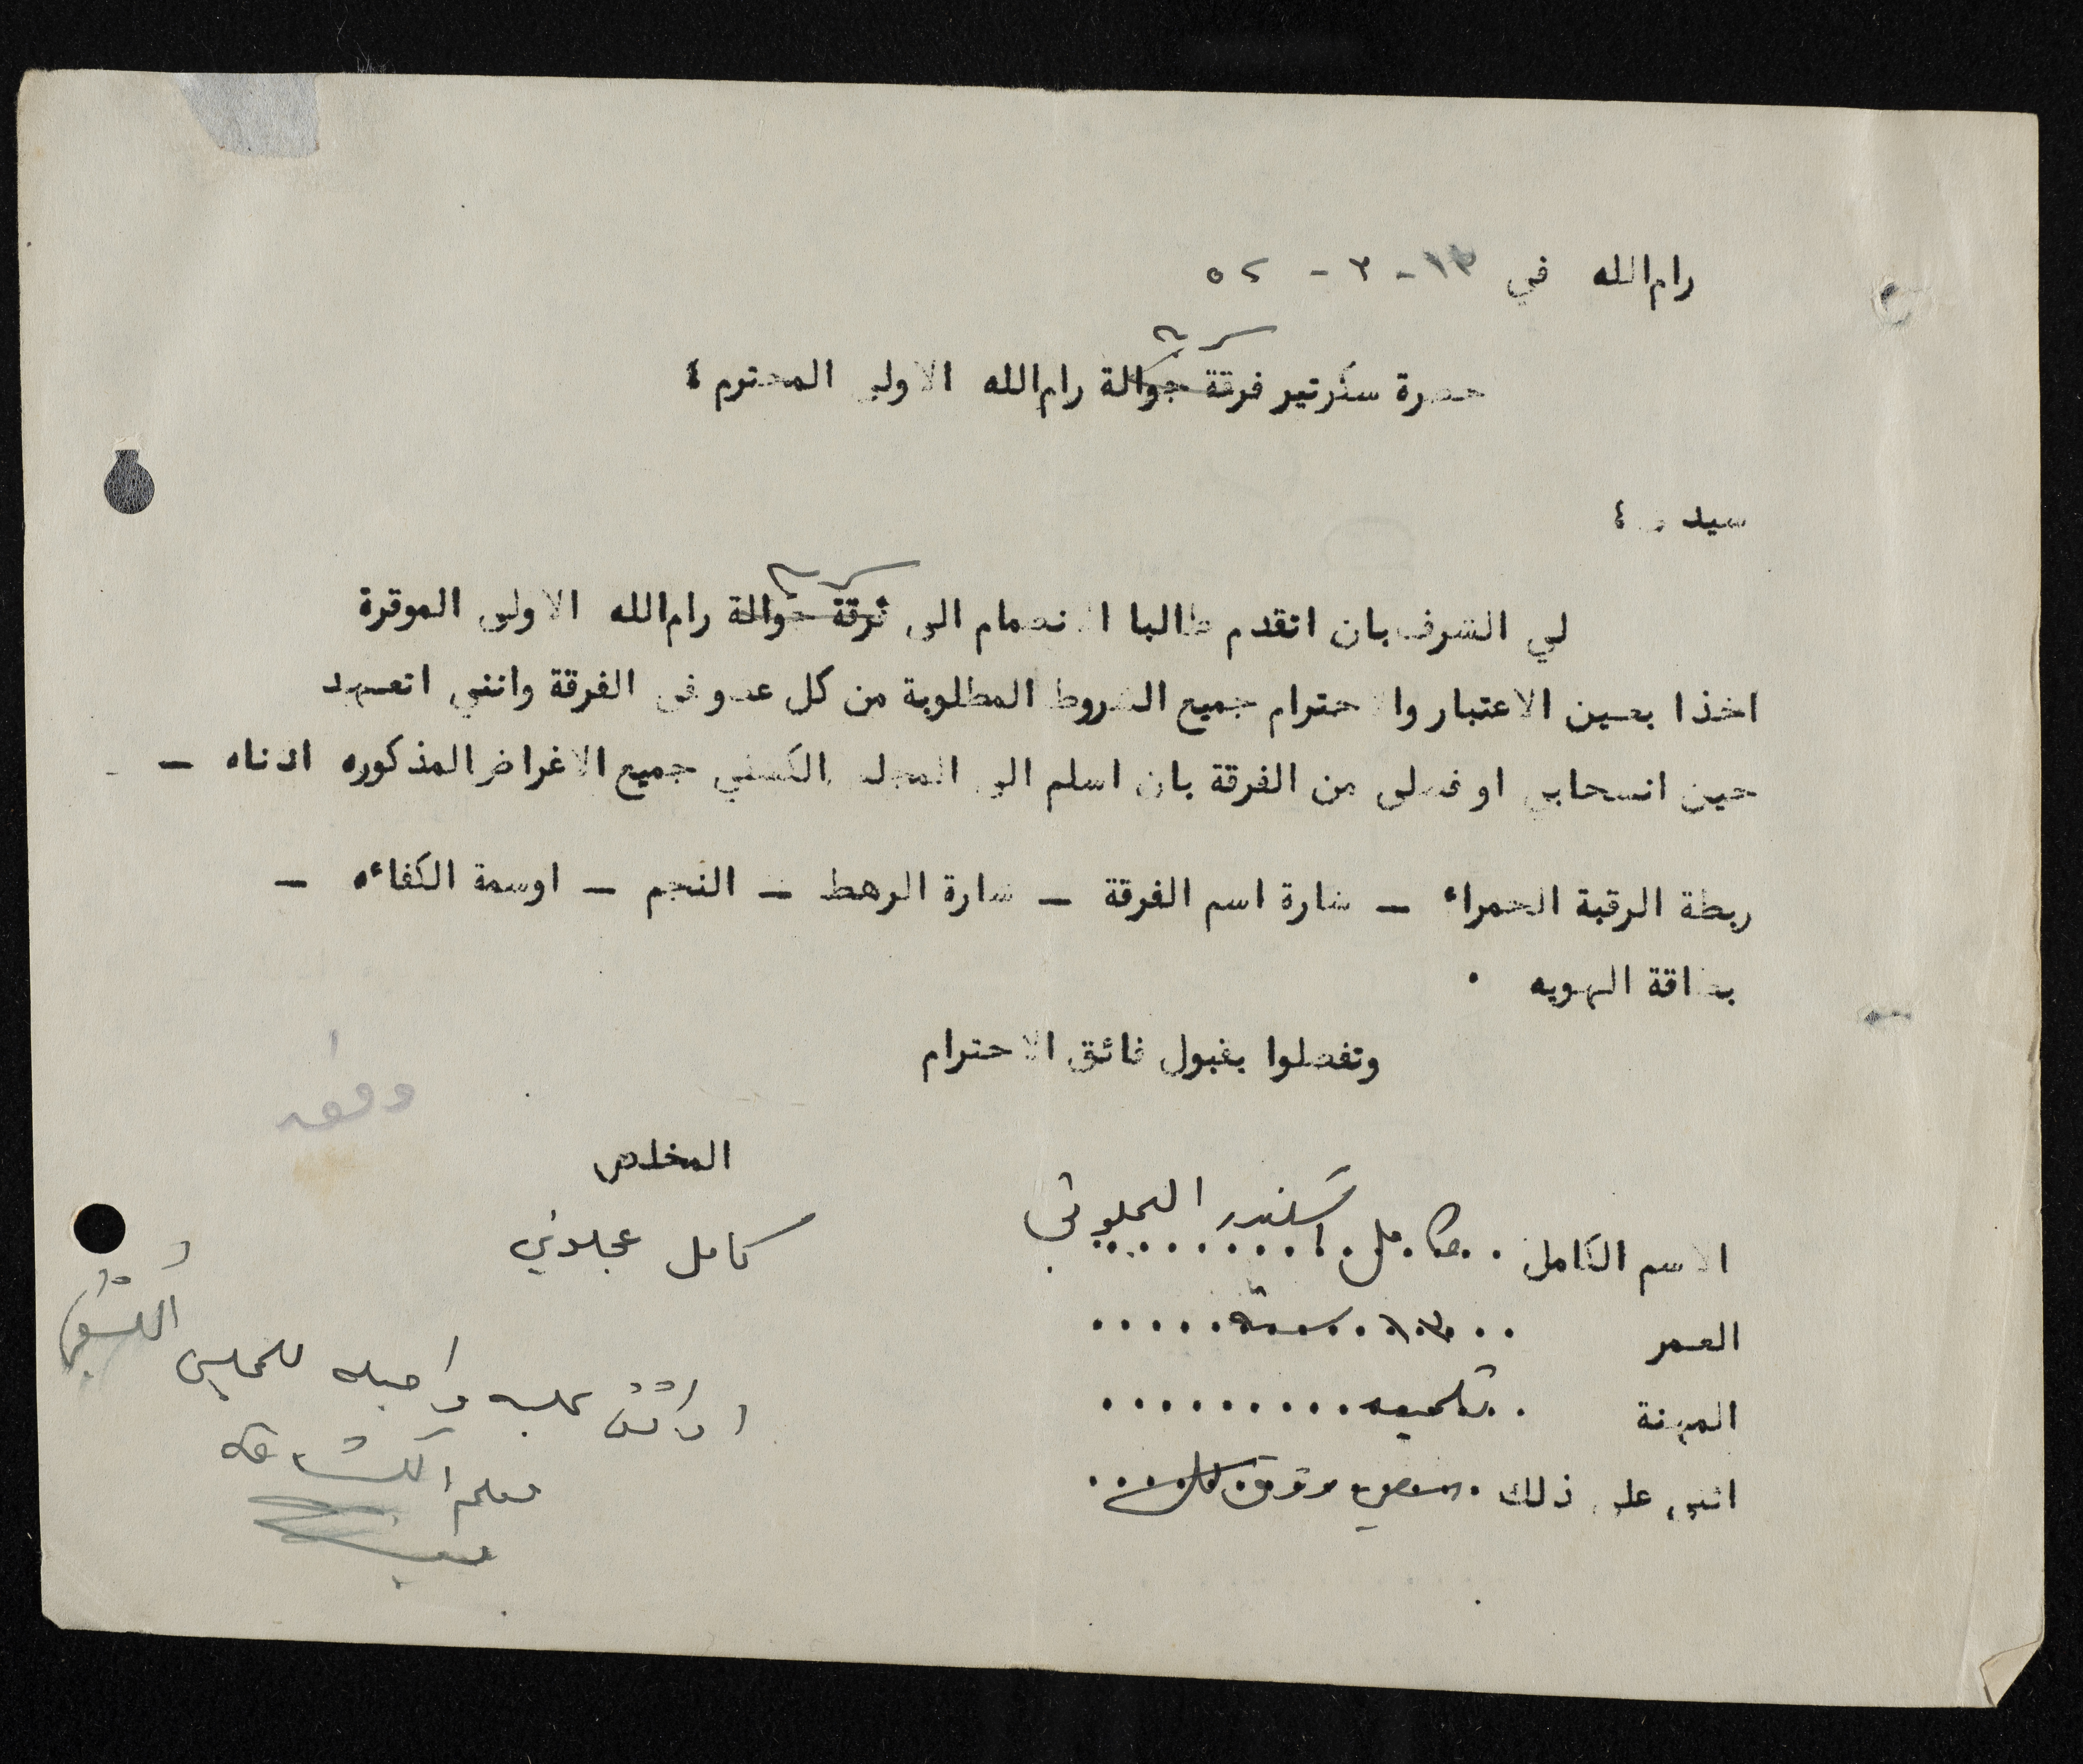 رام الله في ١٣ - ٢ - ٥٢
سرية
حضرة سكرتير فرقة جوالة رام الله الاولى المحترم ٤
سيدي ٤
سرية
لي الشرف بان اتقدم طالبا الانضمام الى فرقة جوالة رام الله الاولى الموقرة
اخذا بعين الاعتبار والاحترام جميع الشروط المطلوبة من كل عضو في الفرقة وانني اتعهد
حين انسحابي او فصلي من الفرقة بان اسلم الى المجلس الكشفي جميع الاغراض المذكوره ادناه —
ربطة الرقبة الحمراء — شارة اسم الفرقة — شارة الرهط — النجم — اوسمة الكفاءه —
بطاقة الهويه .
وتفضلوا بقبول فائق الاحترام
المخلص
كامل عجلوني
الاسم الكامل كامل اسكندر العجلوني
العمر ١٣ سنة
المهنة تلميذ
اثني على ذلك
اوافق عليه واحيله للمجلس الكشفي
معلم الكشافة